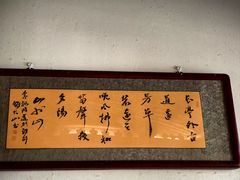 長亭外古
道邊
芳草
碧連天
晚风拂柳
笛聲殘
夕陽
山外山